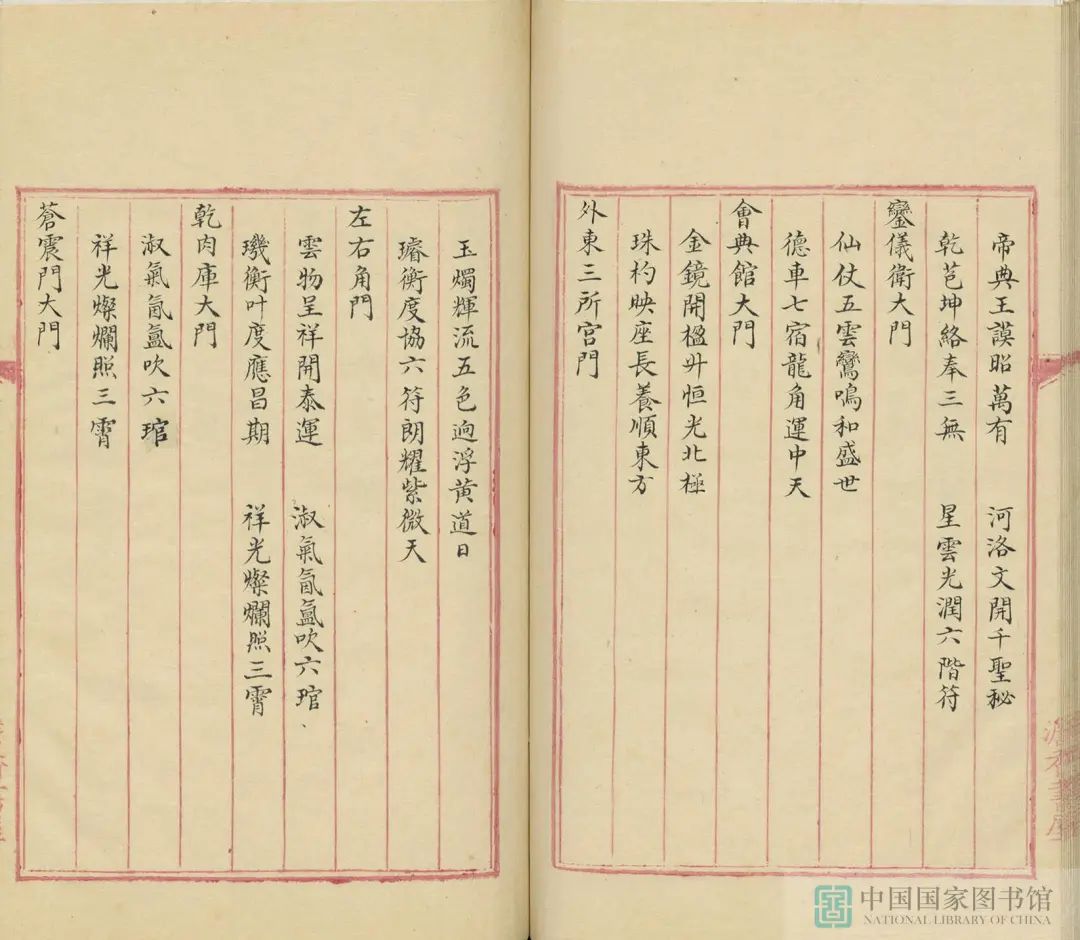 帝典王謨昭萬有　河洛文開千聖秘
乾苞坤絡奉三無　星雲光潤六階符
鑾儀衛大門
仙仗五雲鸞鳴和盛世
德車七宿龍角運中天
會典館大門
金鏡開楹升恒光北極
珠杓映座長養順東方
外東三所宫門
玉燭輝流五色逈浮黄道日
璿衡度協六符朗耀紫微天
左右角門
雲物呈祥開泰運　淑氣氤氳吹六琯
璣衡叶度應昌期　祥光燦爛照三霄
乾肉庫大門
淑氣氤氳吹六琯
祥光燦爛照三霄
蒼震門大門
中国国家图书馆
NATIONAL LIBRARY OF CHINA